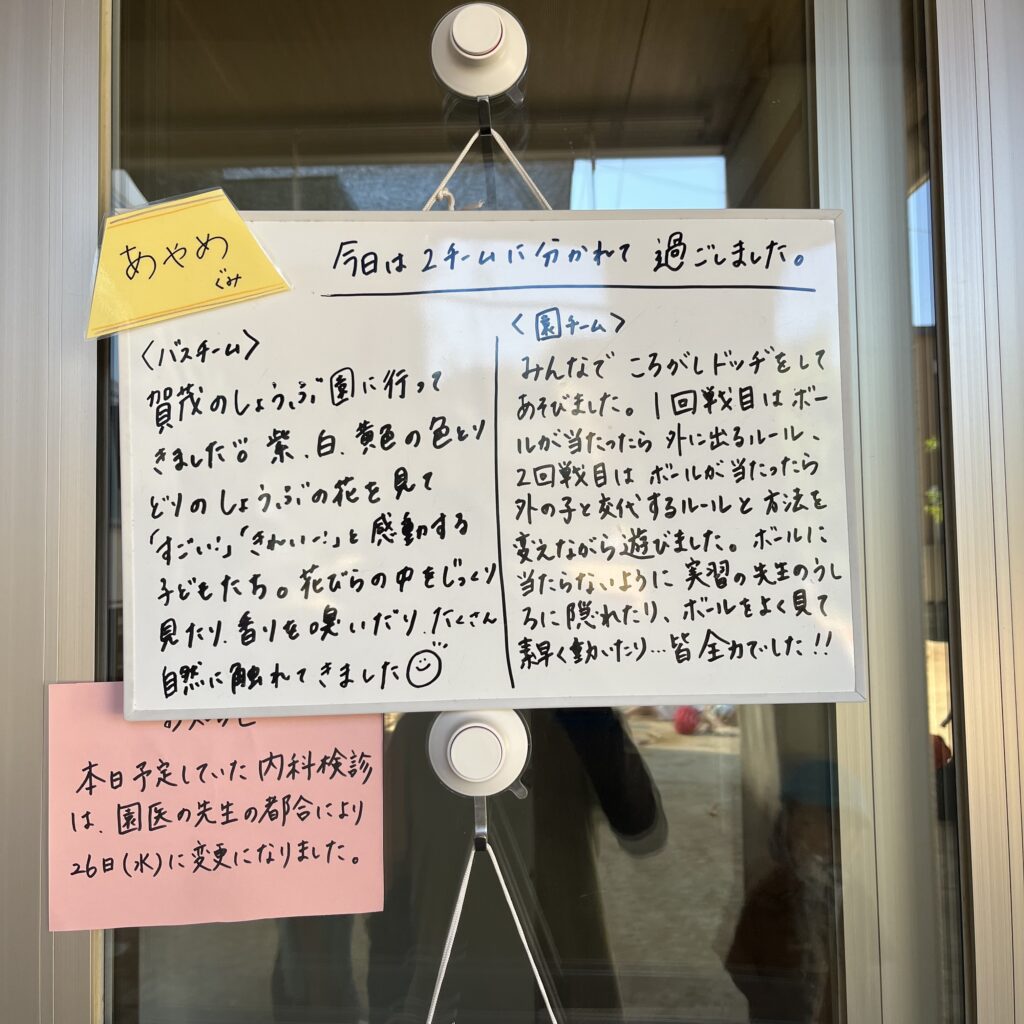 あやめ
ぐみ
今日は2チームに分かれて 過ごしました。
〈バスチーム〉
賀茂のしょうぶ園に行って
きました。紫、白、黄色の色とり
どりのしょうぶの花を見て
「すごい!」「きれいー!」と感動する
子どもたち。花びらの中をじっくり
見たり、香りを嗅いだり、たくさん
自然に触れてきました
〈園チーム〉
みんなで ころがしドッヂをして
あそびました。1回戦目はボー
ルが当たったら 外に出るルール、
2回戦目は ボールが当たったら
外の子と交代するルールと 方法を
変えながら遊びました。ボールに
当たらないように 実習の先生のうし
ろに隠れたり、ボールをよく見て
素早く動いたり…皆全力でした!!
本日予定していた 内科検診
は、園医の先生の都合により
26日(水)に変更になりました。